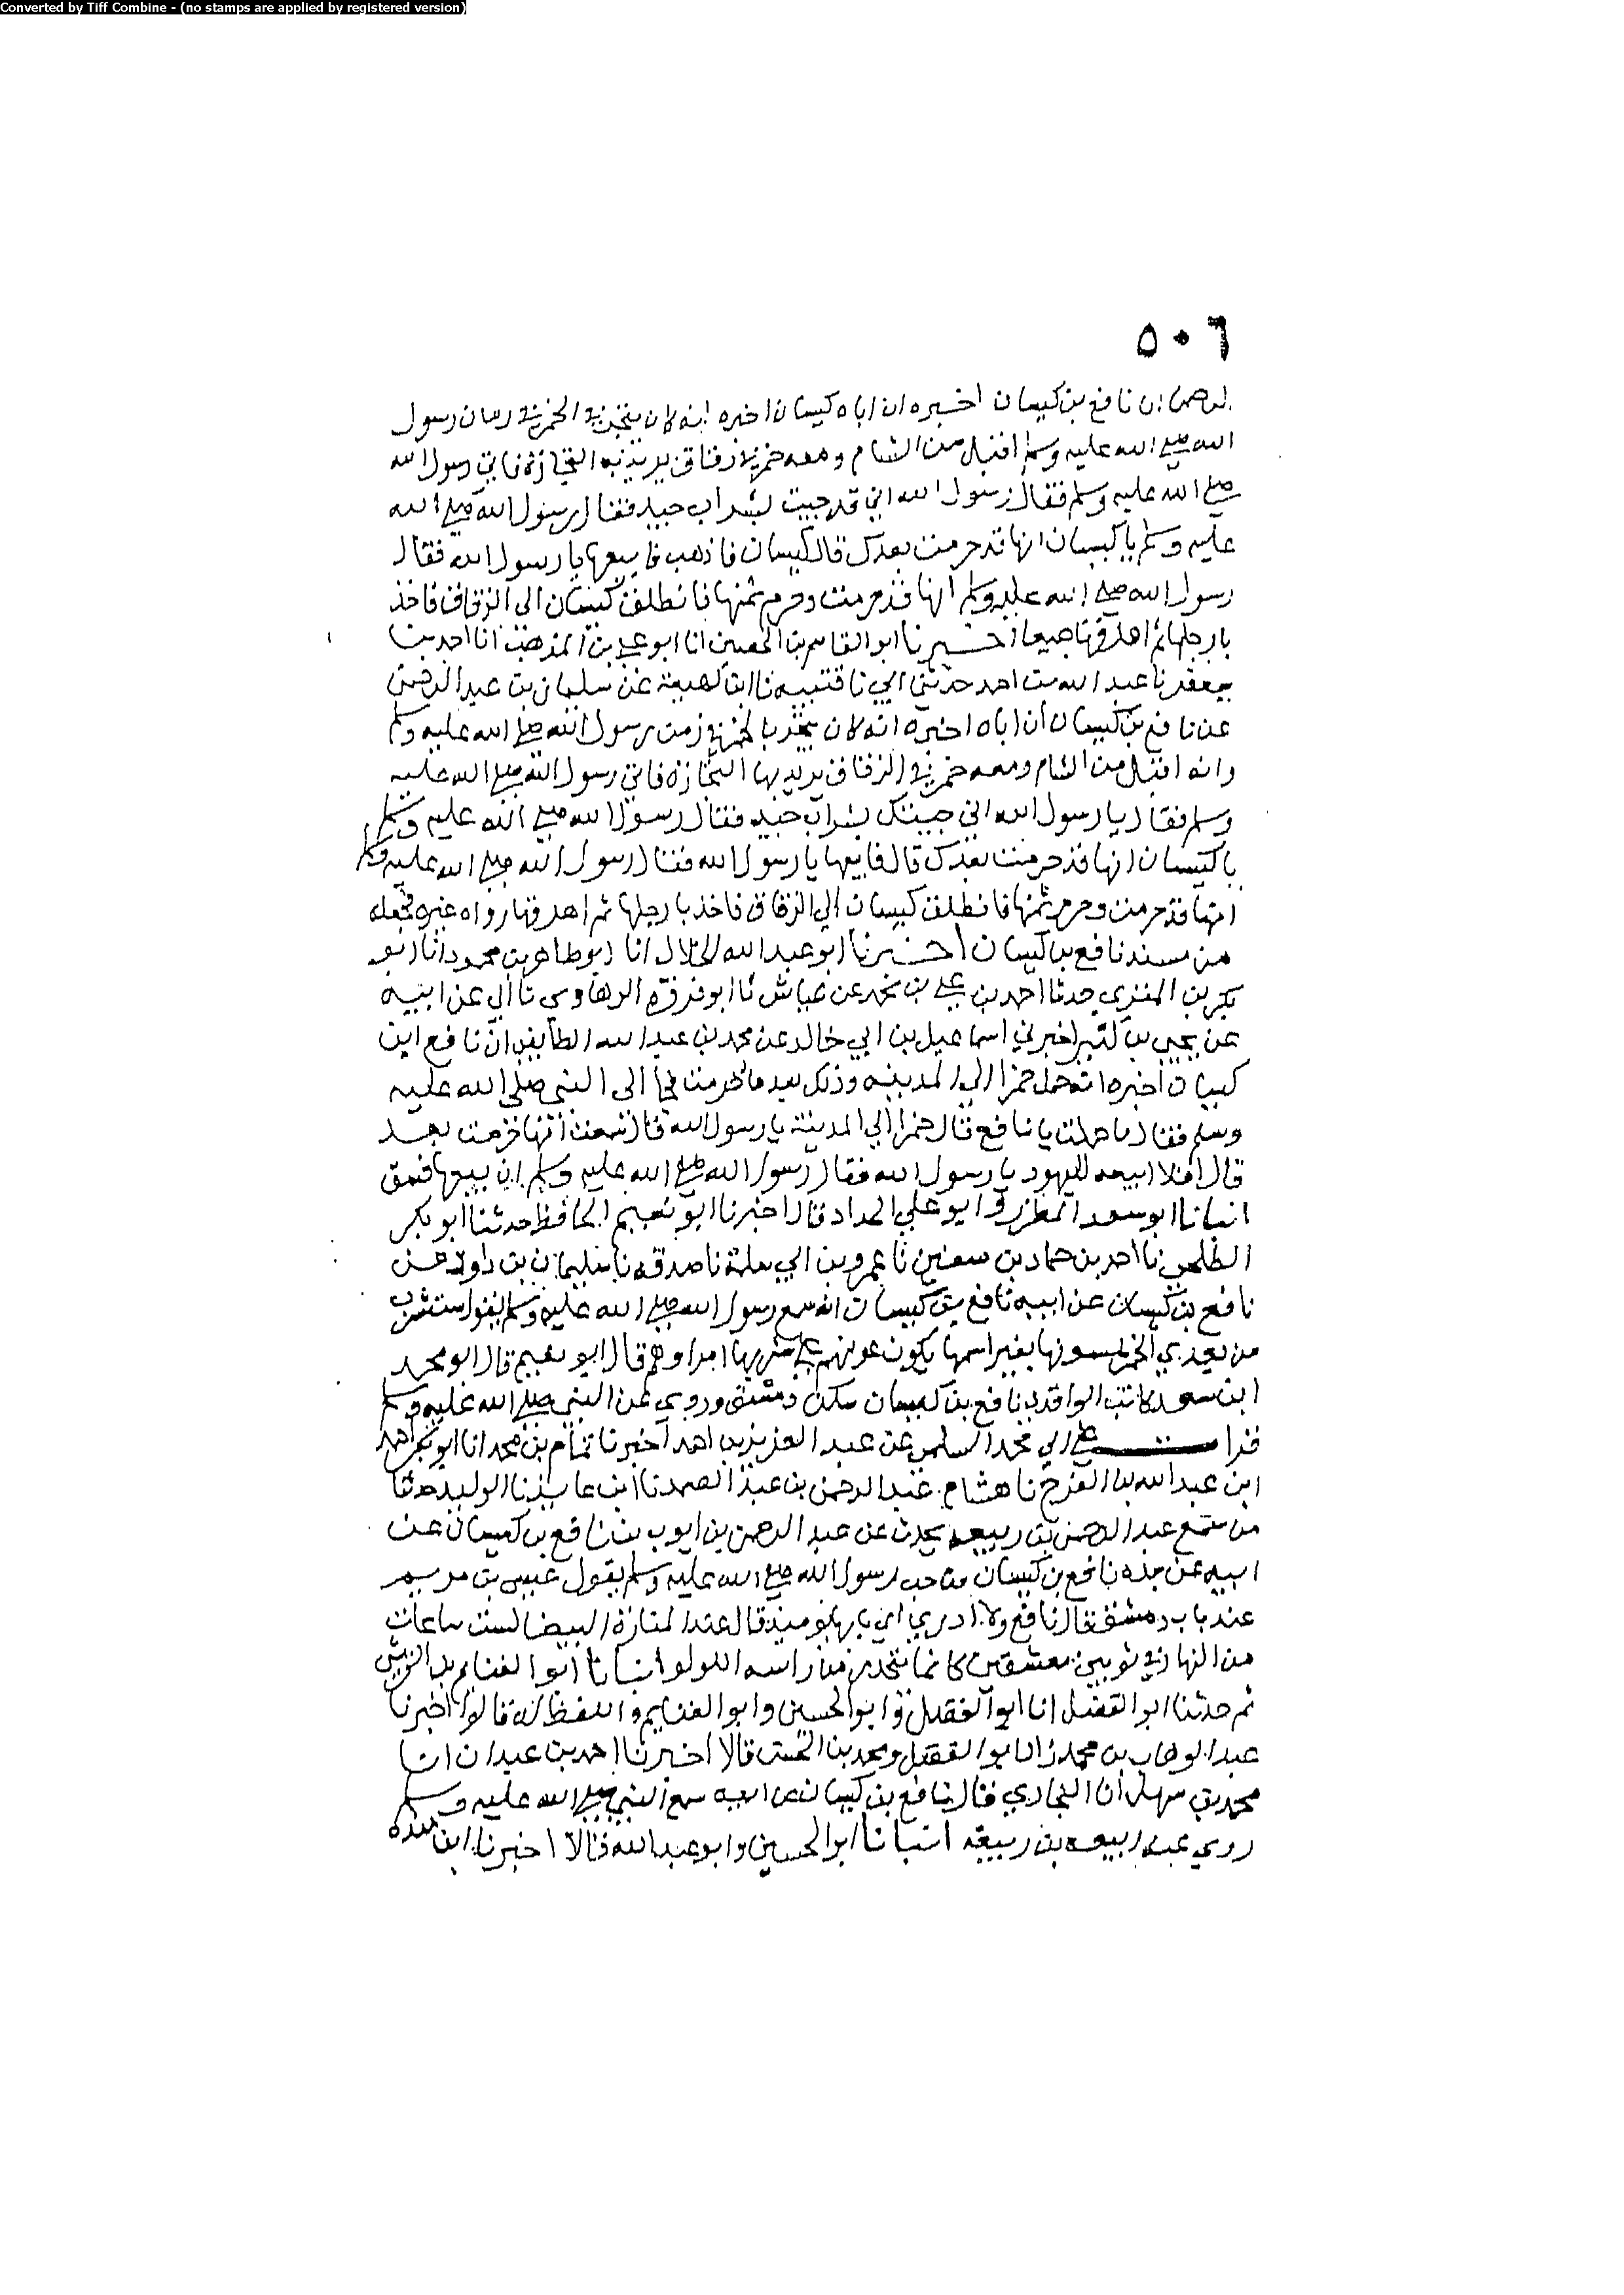 Converted by Tiff Combine - (no stamps are applied by registered version)
٥٠٦
الرحمن ان نافع بن كيسان اخبره ان اباه كيسان اخبره انه كان يتجر في الخمر في زمان رسول
الله صلى الله عليه وسلم اقبل من الشام ومعه خمر في زقاق يريد به التجارة فاتى رسول الله
صلى الله عليه وسلم فقال رسول الله اني قد جيت بشراب جيد فقال رسول الله صلى الله
عليه وسلم يا كيسان انها قد حرمت بعدك قال كيسان فاذهب فابيعها يا رسول الله فقال
رسول الله صلى الله عليه وسلم انها قد حرمت وحرم ثمنها فانطلق كيسان الى الزقاق فاخذ
بارجلها ثم اهرقها جميعا اخبرنا ابو القاسم بن الحصين انا ابو علي بن المذهب انا احمد بن
جعفر نا عبد الله بن احمد حدثني ابي نا قتيبه نا ابن لهيعة عن سليمان بن عبد الرحمن
عن نافع بن كيسان ان اباه اخبره انه كان يتجر بالخمر في زمن رسول الله صلى الله عليه وسلم
وانه اقبل من الشام ومعه خمر في الزقاق يريد بها التجارة فاتى رسول الله صلى الله عليه
وسلم فقال يا رسول الله اني جيتك بشراب جيد فقال رسول الله صلى الله عليه وسلم
يا كيسان انها قد حرمت بعدك قال فابيعها يا رسول الله فقال رسول الله صلى الله عليه وسلم
انها قد حرمت وحرم ثمنها فانطلق كيسان الى الزقاق فاخذ بارجلها ثم اهرقها رواه غيره فجعله
من مسند نافع بن كيسان اخبرنا ابو عبد الله الخلال انا ابو طاهر بن محمود انا ابو
بكر بن المقري حدثنا احمد بن علي بن محمد عن عياش نا ابو فروة الرهاوي نا ابي عن ابيه
عن يحيى بن كثير اخبرني اسماعيل بن ابي خالد عن محمد بن عبد الله الطايفي ان نافع ابن
كيسان اخبره انه حمل خمرا الى المدينه وذلك بعد ما حرمت الى النبي صلى الله عليه
وسلم فقال ما حملت يا نافع قال خمرا الى المدينة يا رسول الله قال انها حرمت بعد
قال افلا ابيعه لليهود يا رسول الله فقال رسول الله صلى الله عليه وسلم ان بيعها
انبانا ابو سعد المطرز وابو علي الحداد قال اخبرنا ابو نعيم الحافظ حدثنا ابو بكر
الطلحي نا احمد بن حماد بن سفين نا عمرو بن ابي سلمة نا صدقه نا سليمان بن داود عن
نافع بن كيسان عن ابيه نافع بن كيسان انه سمع رسول الله صلى الله عليه وسلم يقول ستشرب
من بعدي الخمر يسمونها بغير اسمها يكون عونهم على شربها امراوهم قال ابو نعيم قال ابو محمد
ابن سعد كاتب الواقدي نافع بن كيسان سكن دمشق وروى عن النبي صلى الله عليه وسلم
قرات على ابي محمد السلمي عن عبد العزيز بن احمد اخبرنا تمام بن محمد انا ابو بكر احمد
ابن عبد الله بن الفرج نا هشام عبد الرحمن بن عبد الصمد نا ابن عايذ نا الوليد حدثنا
من سمع عبد الرحمن بن ربيعه يحدث عن عبد الرحمن بن ايوب بن نافع بن كيسان عن
ابيه عن جده نافع بن كيسان صاحب رسول الله صلى الله عليه وسلم يقول عيسى بن مريم
عند باب دمشق قال نافع ولا ادري اي بابها يوميذ قال عند المنارة البيضا لست ساعات
من النهار في ثوبين ممشقين كانما يتحدر من راسه اللولو انبانا ابو الغنايم بن النرسي
ثم حدثنا ابو الفضل انا ابو الفضل وابو الحسين وابو الغنايم واللفظ له قالوا اخبرنا
عبد الوهاب بن محمد زاد ابو الفضل ومحمد بن الحسن قالا اخبرنا احمد بن عبدان انا
محمد بن سهل انا البخاري قال نافع بن كيسان عن ابيه سمع النبي صلى الله عليه وسلم
روى عنه ربيعه بن ربيعه انبانا ابو الحسين وابو عبد الله قالا اخبرنا ابن منده